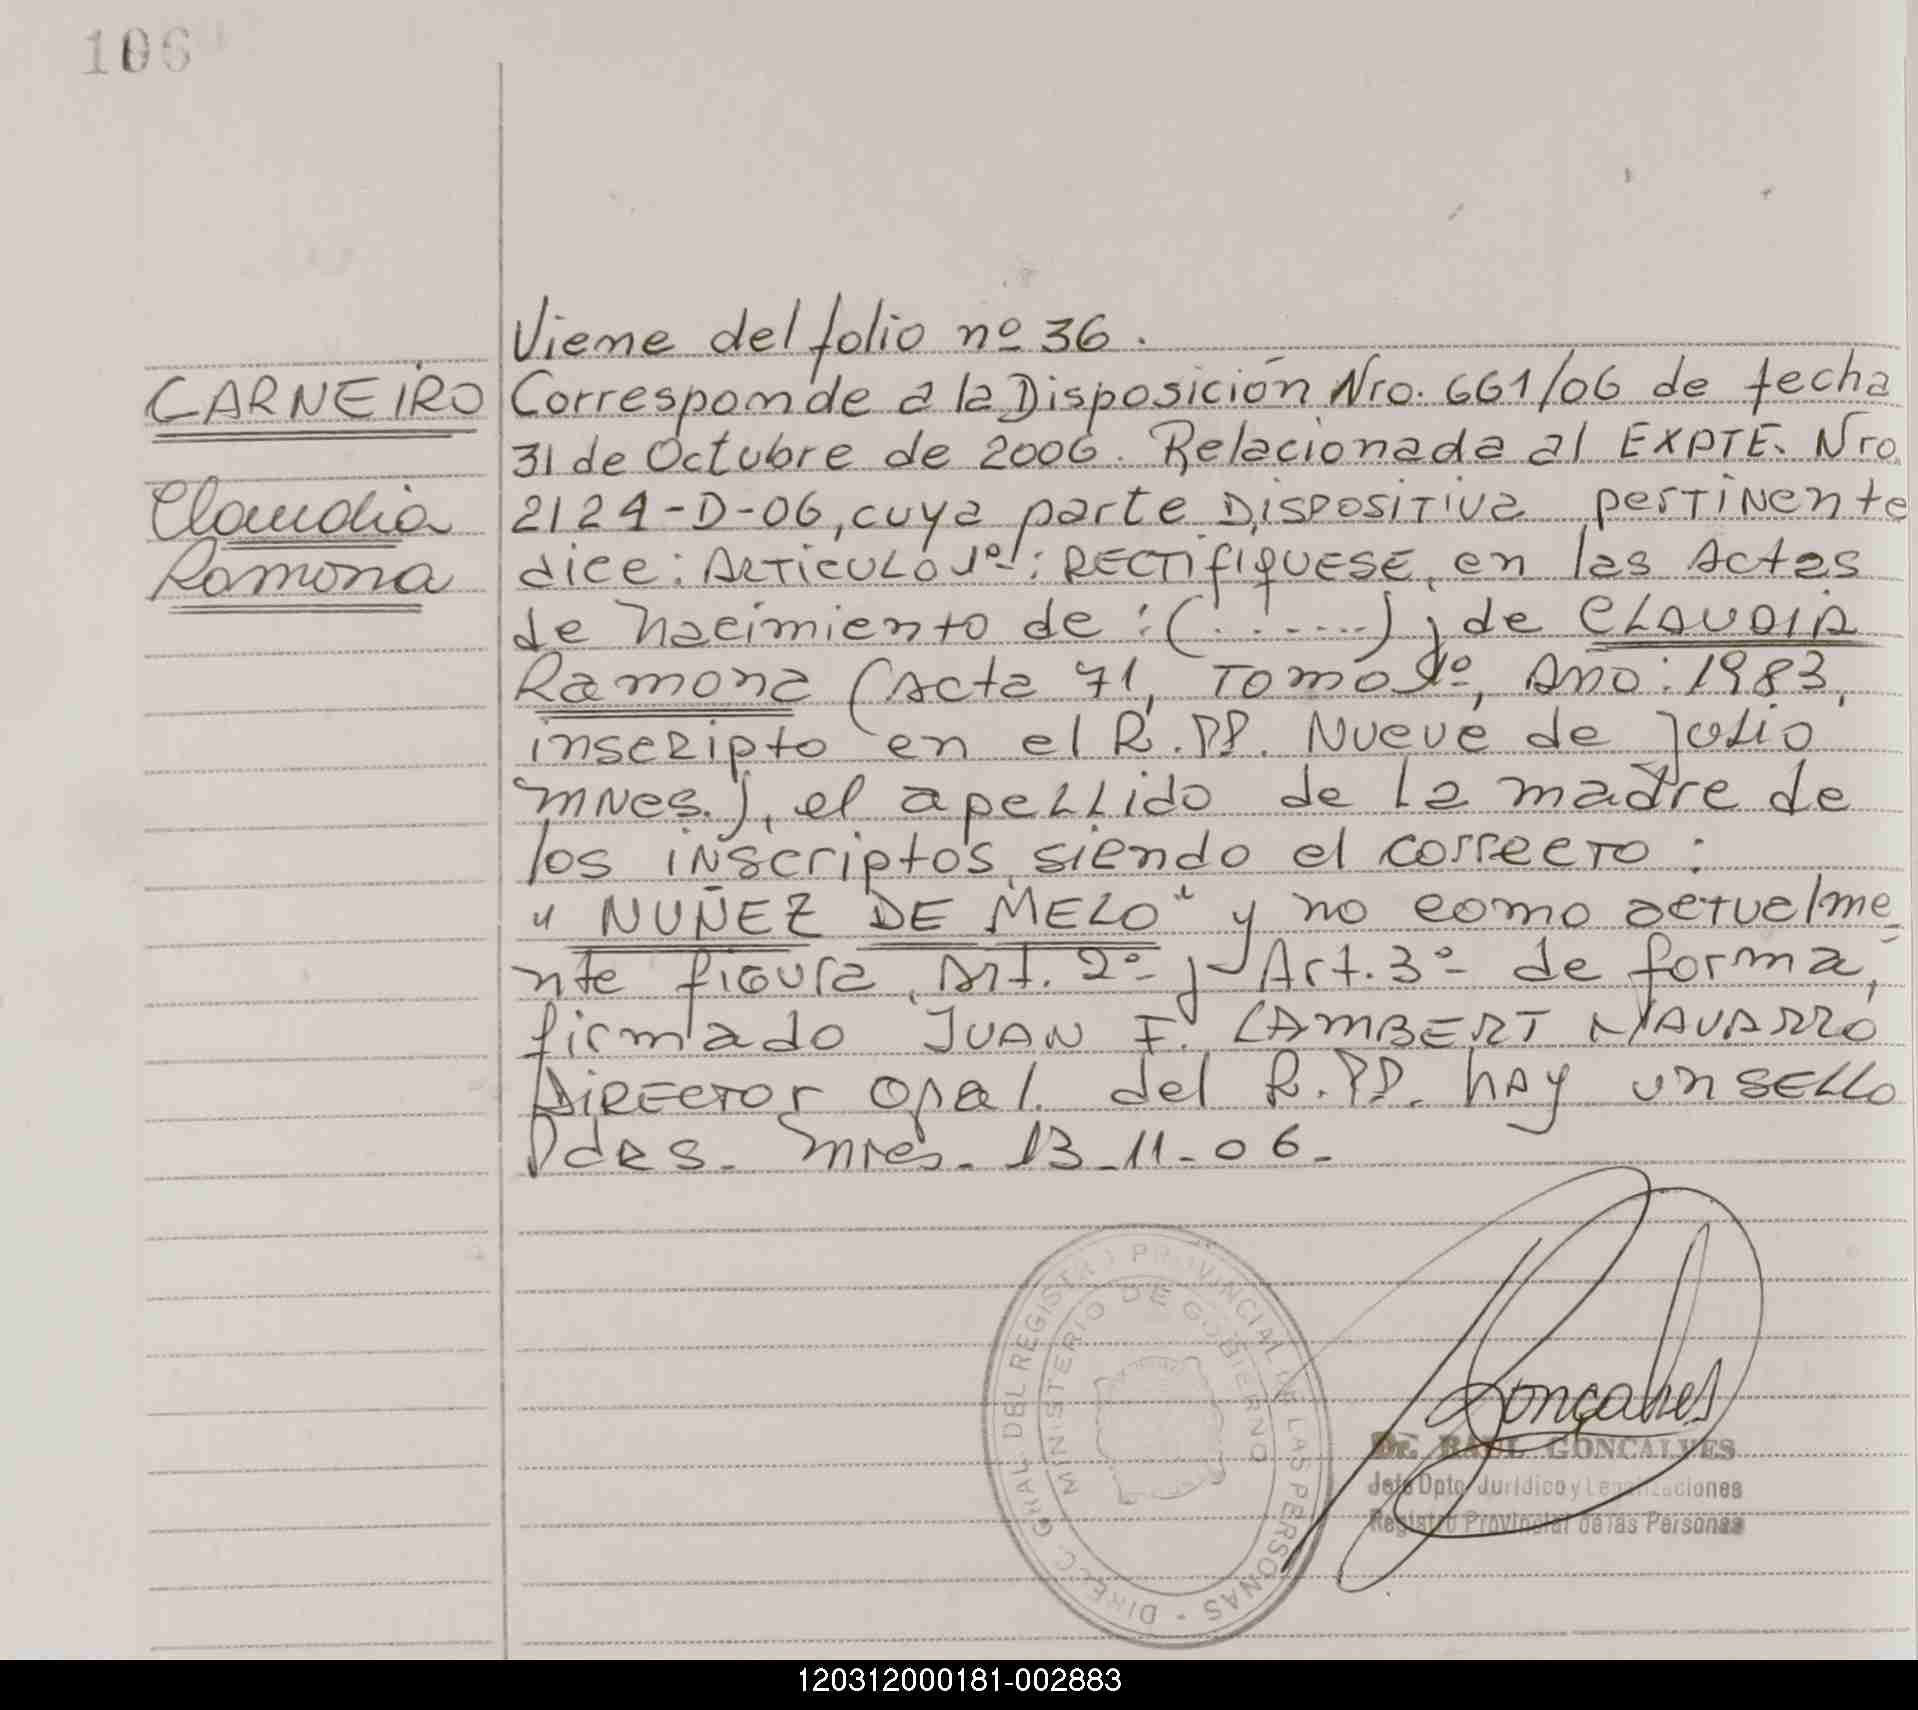 106
Viene del folio nº 36.
CARNEIRO
Claudia
Ramona
Corresponde a la Disposición Nro. 661/06 de fecha
31 de Octubre de 2006. Relacionada al EXPTE. Nro.
2124-D-06, cuya parte DISPOSITIVA pertinente
dice: ARTICULO 1º: RECTIFIQUESE, en las Actas
de Nacimiento de: (.......) y de CLAUDIA
Ramona (Acta 71, Tomo 1º, Año: 1983,
inscripto en el R.PP. Nueve de Julio
Mnes.), el apellido de la madre de
los inscriptos, siendo el correcto:
"NUÑEZ DE MELO" y no como actualme
nte figura, Art. 2º y Art. 3º de forma,
firmado JUAN F. LAMBERT NAVARRO
DIRECTOR Gral. del R.PP. hay un SELLO
Pdas. Mnes. 13-11-06.
DIREC. GRAL. DEL REGISTRO PROVINCIAL DE LAS PERSONAS -
MINISTERIO DE GOBIERNO
Goncalves
Dr. RAUL GONCALVES
Jefe Dpto. Jurídico y Legalizaciones
Registro Provincial de las Personas
120312000181-002883